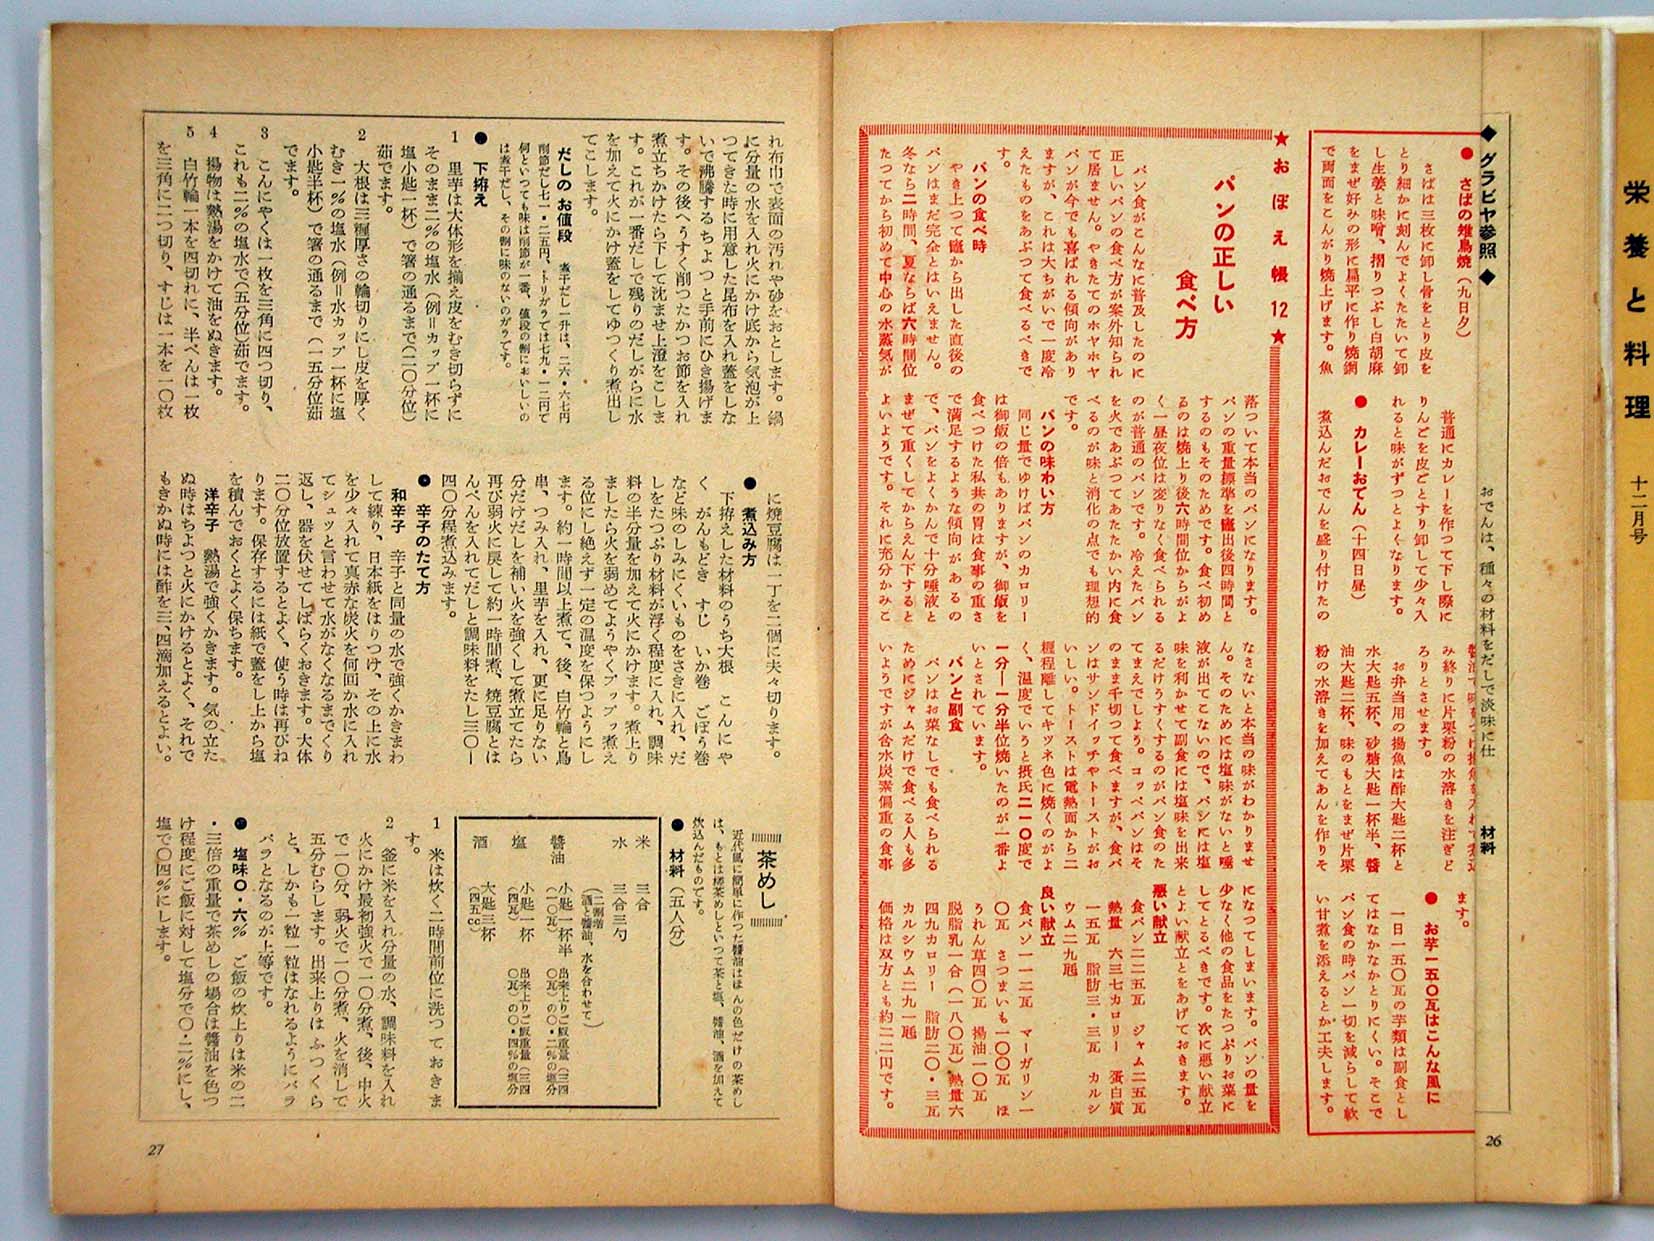 栄養と料理　十二月号
◆グラビヤ参照◆
おでんは、種々の材料をだしで淡味に仕
材料
● さばの雉鳥焼（九日夕）
さばは三枚に卸し骨をとり皮を
とり細かに刻んでよくたたいて卸
し生姜と味噌、摺りつぶし白胡麻
をまぜ好みの形に扁平に作り焼網
で両面をこんがり焼上げます。魚
普通にカレーを作つて下し際に
りんごを皮ごとすり卸して少々入
れると味がずつとよくなります。
● カレーおでん（十四日昼）
煮込んだおでんを盛り付けたの
み終りに片栗粉の水溶きを注ぎと
ろりとさせます。
お弁当用の揚魚は酢大匙二杯と
水大匙五杯、砂糖大匙一杯半、醬
油大匙二杯、味のもとをまぜ片栗
粉の水溶きを加えてあんを作りそ
ます。
● お芋一五〇瓦はこんな風に
一日一五〇瓦の芋類は副食とし
てはなかなかとりにくい。そこで
パン食の時パン一切を減らして軟
い甘煮を添えるとか工夫します。
★おぼえ帳12★
パンの正しい
食べ方
パン食がこんなに普及したのに
正しいパンの食べ方が案外知られ
て居ません。やきたてのホヤホヤ
パンが今でも喜ばれる傾向があり
ますが、これは大ちがいで一度冷
えたものをあぶつて食べるべきで
す。
パンの食べ時
やき上つて竈から出した直後の
パンはまだ完全とはいえません。
冬なら二時間、夏ならば六時間位
たつてから初めて中心の水蒸気が
落ついて本当のパンになります。
パンの重量標準を竈出後四時間と
するのもそのためです。食べ初め
るのは焼上り後六時間位からがよ
く一昼夜位は変りなく食べられる
のが普通のパンです。冷えたパン
を火であぶつてあたたかい内に食
べるのが味と消化の点でも理想的
です。
パンの味わい方
同じ量でゆけばパンのカロリー
は御飯の倍もありますが、御飯を
食べつけた私共の胃は食事の重さ
で満足するような傾向があるの
で、パンをよくかんで十分唾液と
まぜて重くしてからえん下すると
よいようです。それに充分かみこ
なさないと本当の味がわかりませ
ん。そのためには塩味がないと唾
液が出てこないので、パンには塩
味を利かせて副食には塩味を出来
るだけうすくするのがパン食のた
てまえでしよう。コッペパンはそ
のまま千切つて食べますが、食パ
ンはサンドイッチやトーストがお
いしい。トーストは電熱面から二
糎程離してキツネ色に焼くのがよ
く、温度でいうと摂氏二一〇度で
一分—一分半位焼いたのが一番よ
いとされています。
パンと副食
パンはお菜なしでも食べられる
ためにジャムだけで食べる人も多
いようですが含水炭素偏重の食事
になつてしまいます。パンの量を
少なく他の食品をたつぷりお菜に
してとるべきです。次に悪い献立
とよい献立とをあげておきます。
悪い献立
食パン二二五瓦　ジャム二五瓦
熱量　六三七カロリー　蛋白質
一五瓦　脂肪三・三瓦　カルシ
ウム二九瓱
良い献立
食パン一一二瓦　マーガリン一
〇瓦　さつまいも一〇〇瓦　ほ
うれん草四〇瓦　揚油一〇瓦
脱脂乳一合（一八〇瓦）熱量六
四九カロリー　脂肪二〇・三瓦
カルシウム二九一瓱
価格は双方とも約二二円です。
26
れ布巾で表面の汚れや砂をおとします。鍋
に分量の水を入れ火にかけ底から気泡が上
つてきた時に用意した昆布を入れ蓋をしな
いで沸騰するちょつと手前にひき揚げま
す。その後へうすく削つたかつお節を入れ
煮立ちかけたら下して沈ませ上澄をこしま
す。これが一番だしで残りのだしがらに水
を加えて火にかけ蓋をしてゆつくり煮出し
てこします。
だしのお値段　煮干だし一升は、二六・六七円
削節だし七一・二五円、トリガラでは七九・一二円で
何といつても味は削節が一番、値段の割においしいの
は煮干だし、その割に味のないのがガラです。
● 下拵え
1　里芋は大体形を揃え皮をむき切らずに
そのまま二％の塩水（例＝カップ一杯に
塩小匙一杯）で箸の通るまで（二〇分位）
茹でます。
2　大根は三糎厚さの輪切りにし皮を厚く
むき一％の塩水（例＝水カップ一杯に塩
小匙半杯）で箸の通るまで（一五分位茹
でます。
3　こんにやくは一枚を三角に四つ切り、
これも二％の塩水で（五分位）茹でます。
4　揚物は熱湯をかけて油をぬきます。
5　白竹輪一本を四切れに、半ぺんは一枚
を三角に二つ切り、すじは一本を一〇枚
に焼豆腐は一丁を二個に夫々切ります。
● 煮込み方
下拵えした材料のうち大根　こんにや
く　がんもどき　すじ　いか巻　ごぼう巻
など味のしみにくいものをさきに入れ、だ
しをたつぷり材料が浮く程度に入れ、調味
料の半分量を加えて火にかけます。煮上り
ましたら火を弱めてようやくブツブツ煮え
る位にし絶えず一定の温度を保つようにし
ます。約一時間以上煮て、後、白竹輪と鳥
串、つみ入れ、里芋を入れ、更に足りない
分だけだしを補い火を強くして煮立てたら
再び弱火に戻して約一時間煮、焼豆腐とは
んぺんを入れてだしと調味料をたし三〇—
四〇分程煮込みます。
● 辛子のたて方
和辛子　辛子と同量の水で強くかきまわ
して練り、日本紙をはりつけ、その上に水
を少々入れて真赤な炭火を何回か水に入れ
てシュッと言わせて水がなくなるまでくり
返し、器を伏せてしばらくおきます。大体
二〇分位放置するとよく、使う時は再びね
ります。保存するには紙で蓋をし上から塩
を積んでおくとよく保ちます。
洋辛子　熱湯で強くかきます。気の立た
ぬ時はちよつと火にかけるとよく、それで
もきかぬ時には酢を三、四滴加えるとよい。
茶めし
近代風に簡単に作つた醬油ほんの色だけの茶めし
は、もとは桜茶めしといつて茶と塩、醬油、酒を加えて
炊込んだものです。
● 材料（五人分）
米　三合
水　三合三勺
（二割増
酒と醬油、水を合わせて）
醬油　小匙一杯半　出来上りご飯重量（三四
（一〇瓦）　〇瓦）の〇・二％の塩分
塩　小匙一杯　出来上りご飯重量（三四
（四瓦）　〇瓦）の〇・四％の塩分
酒　大匙三杯
（四五cc）
1　米は炊く二時間前位に洗つておきま
す。
2　釜に米を入れ分量の水、調味料を入れ
火にかけ最初強火で一〇分煮、後、中火
で一〇分、弱火で一〇分煮、火を消して
五分むらします。出来上りはふつくら
と、しかも一粒一粒はなれるようにバラ
バラとなるのが上等です。
● 塩味〇・六％　ご飯の炊上りは米の二
・三倍の重量で茶めしの場合は醬油を色つ
け程度にご飯に対して塩分で〇・二％にし、
塩で〇四％にします。
27